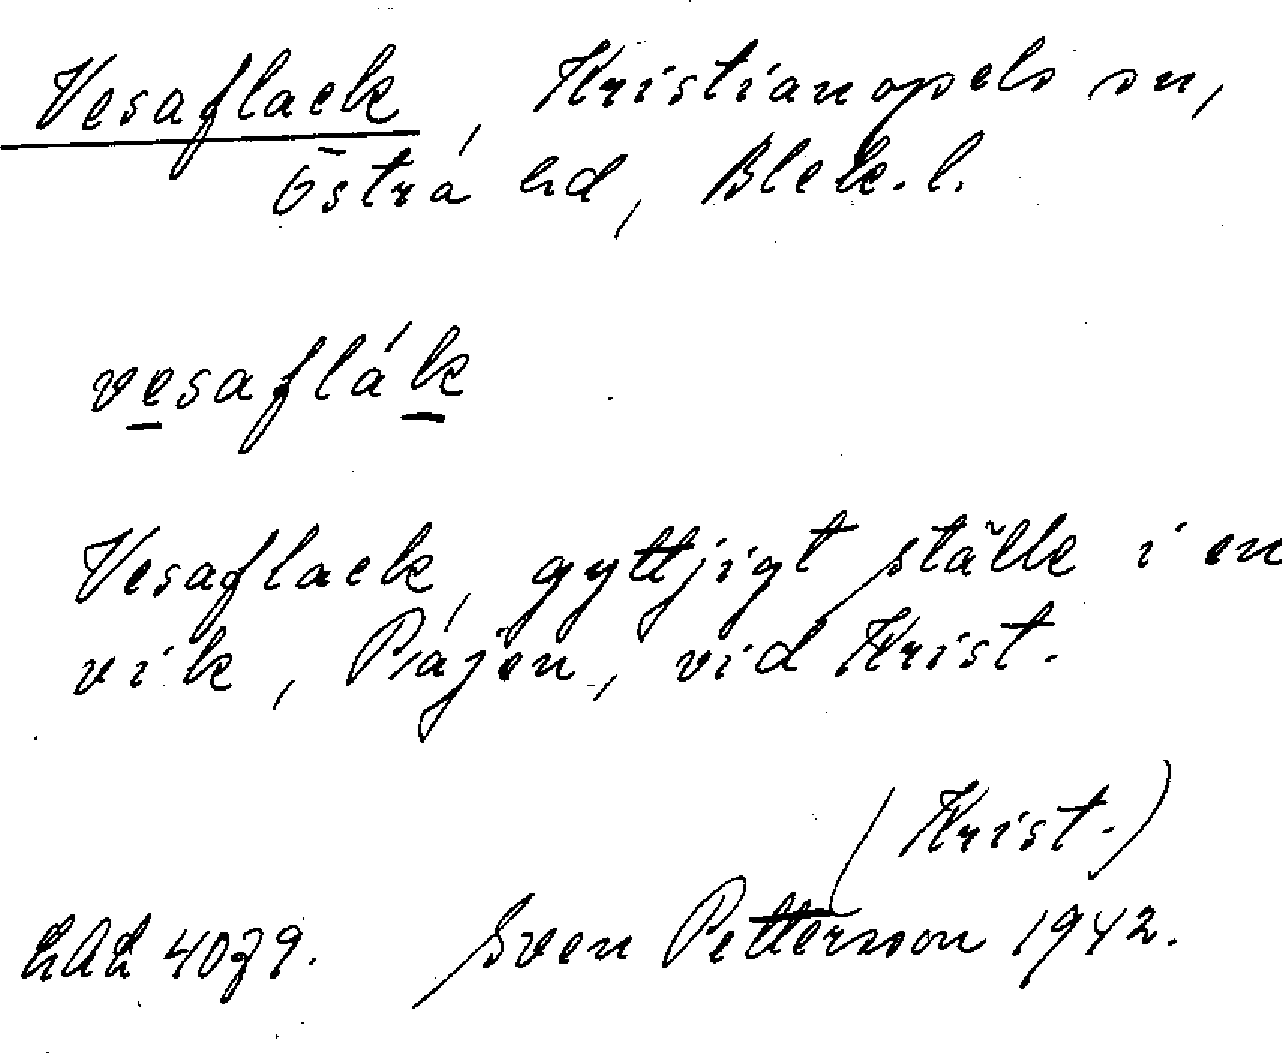 Vesaflack, Kristianopels sn,
Östra hd, Blek. l.
vesaflák
Vesaflack, gyttjigt ställe i en
vik, Påjen, vid Krist.
(Krist.)
LAL 4079. Sven Petterson 1942.